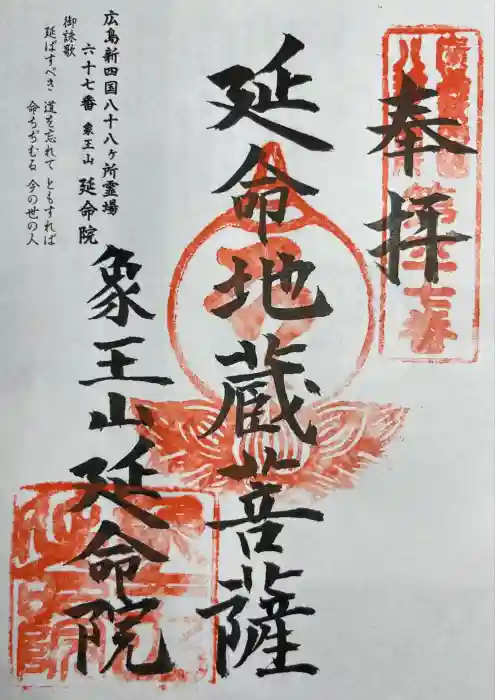 奉拝
延命地蔵菩薩
象王山延命院
広島新四国八十八ヶ所霊場
六十七番 象王山 延命院
御詠歌
延ばすべき 道を忘れて ともすれば
命ちぢむる 今の世の人
第六十七番